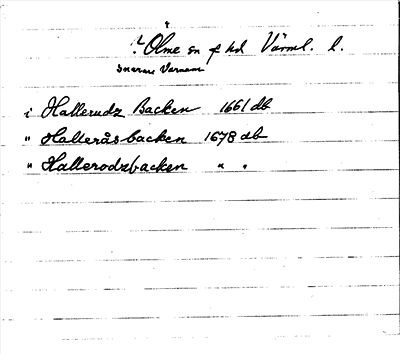 ? Ölme sn f hd Värml. l.
snarare Varnum
i Hallerudz Backen 1661 db
" Halleråsbacken 1678 db
" Hallerodzbacken " "